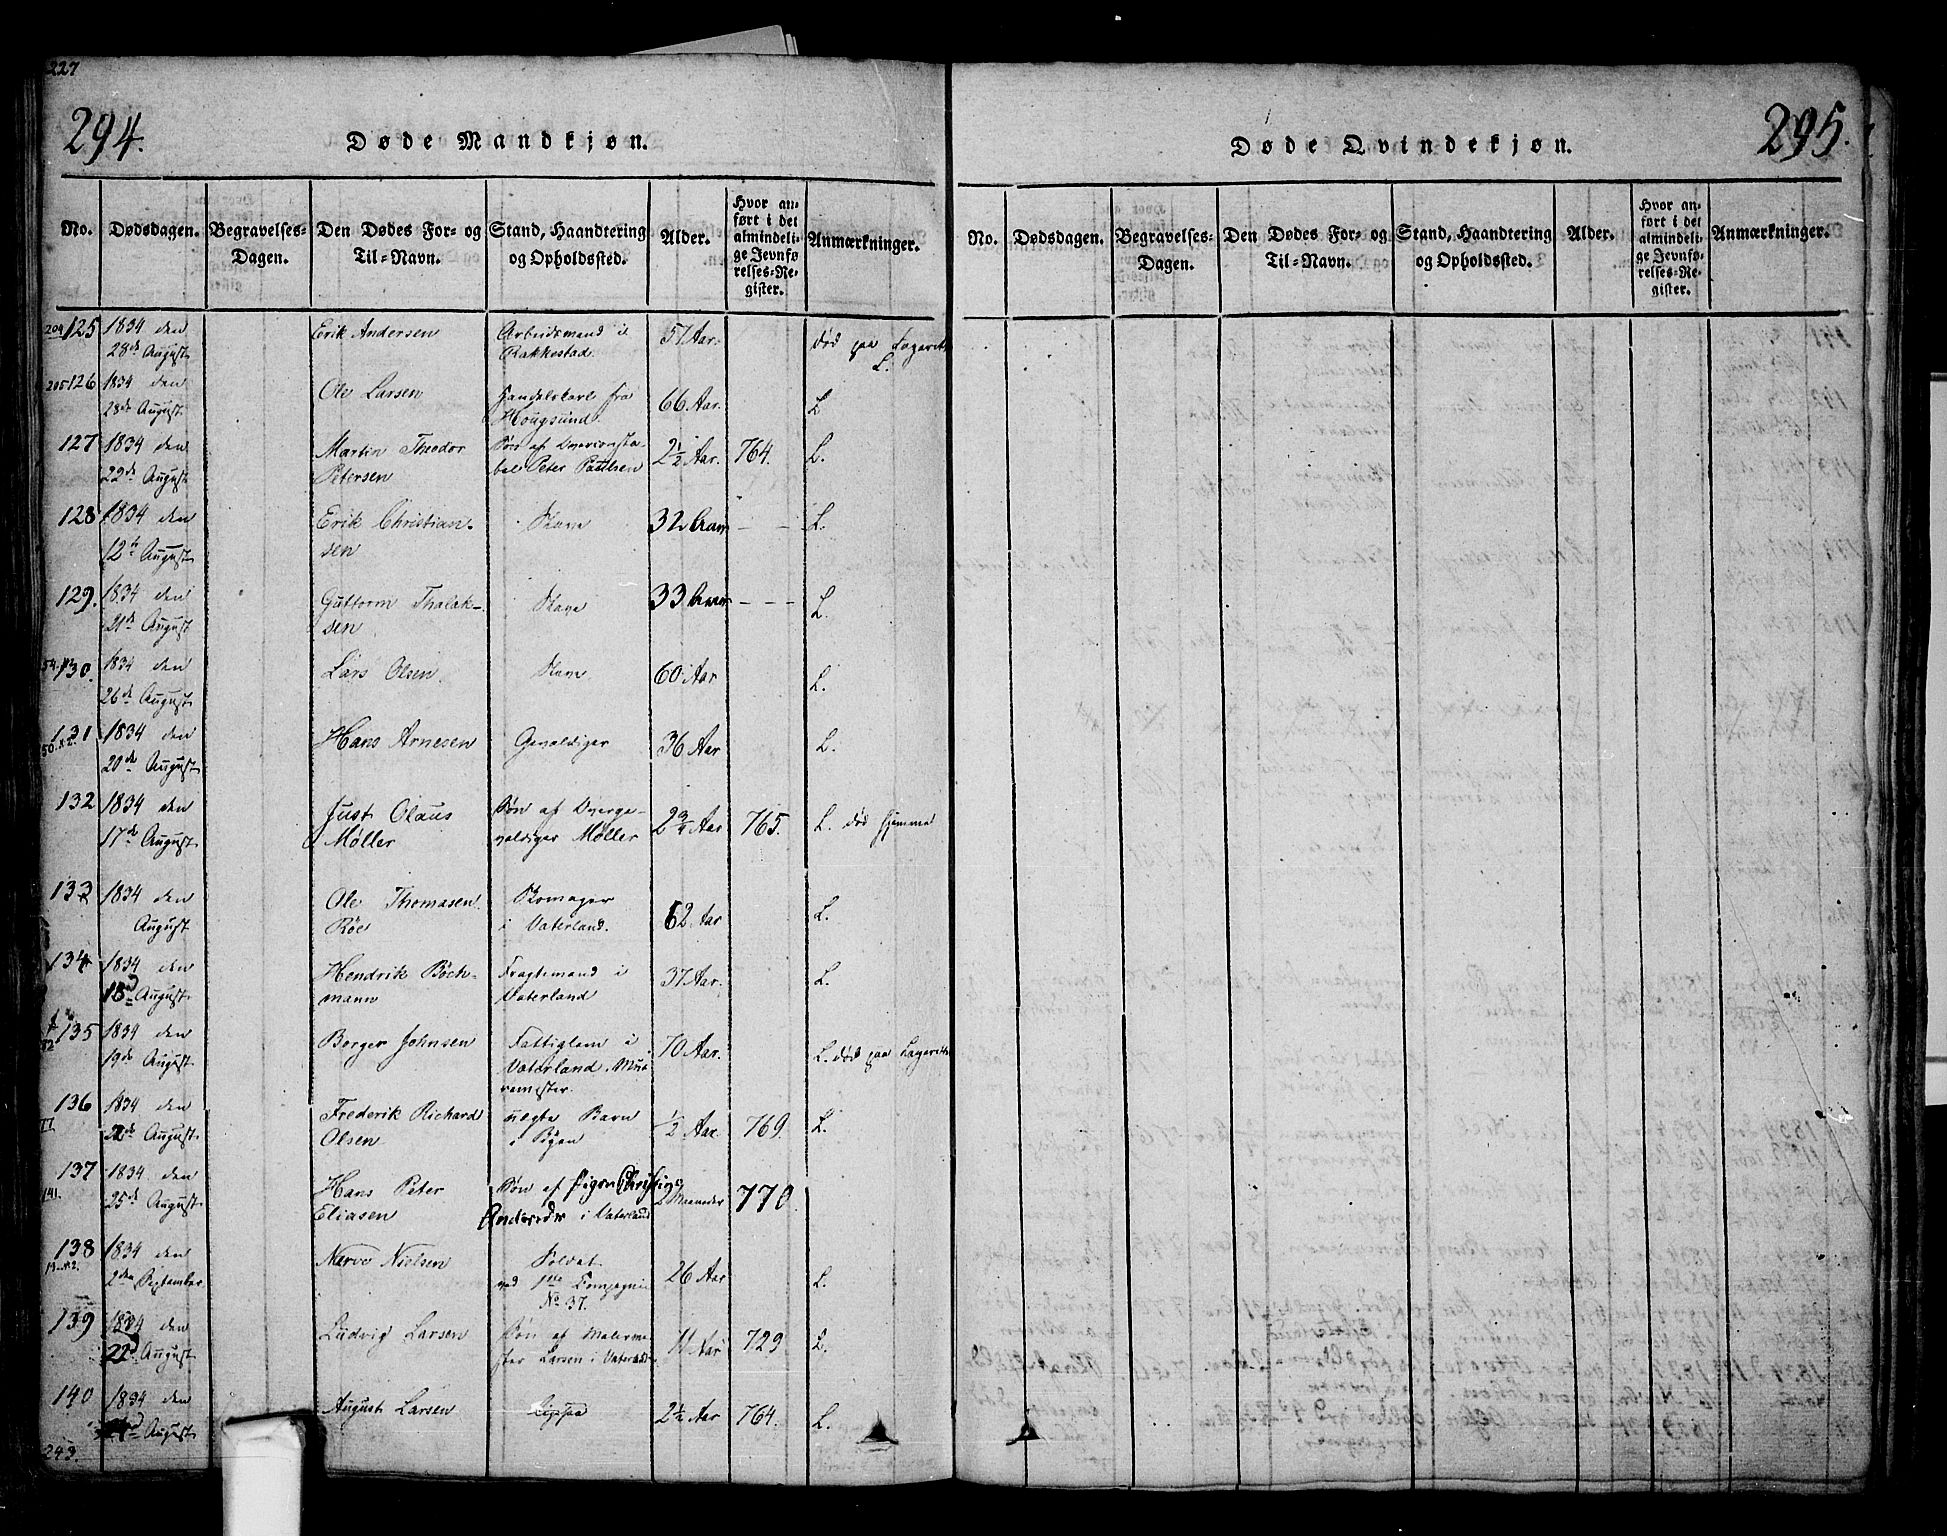 227
294.
Døde Mandkjøn.
No. Dødsdagen. Begravelses-Dagen. Den Dødes For- og Til-Navn. Stand, Haandtering og Opholdssted. Alder. Hvor anført i det almindelige Jevnførelses-Register. Anmærkninger.
204 125 1834 den Erik Andersen Arbeidsmand i 57 Aar. død paa Lazareth
28de August Rakkestad. L.
205 126 1834 den Ole Larsen Handelskarl fra 66 Aar. L
28de August Hougsund.
127 1834 den Martin Theodor Søn af Overconsta- 2½ Aar. 764. L.
22de August Petersen bel Peter Paulsen
128 1834 den Erik Christian- Slave 32 Aar — — L.
12te August sen
129. 1834 den Guttorm Thalak- Slave 33 Aar — — — L
21de August sen
130. 1834 den Lars Olsen. Slave 60 Aar L.
26de August
131 1834 den Hans Arnesen Gevaldiger 36 Aar L.
20de August
132 1834 den Just Olaus Søn af Overge- 2¾ Aar 765. L. død hjemme
17de August Møller valdiger Møller
133 1834 den Ole Thomasen Skomager 62 Aar L.
August Röe i Vaterland.
134 1834 den Hendrik Böch- Fragtemand i 37 Aar. L.
18d August mann Vaterland
135 1834 den Borger Johnsen Fattiglem i 70 Aar. L. død paa Lazareth
19de August Vaterland. Mur
remester.
136 1834 den Frederik Richard uægte Barn ½ Aar 769. L.
August Olsen i Byen
137 1834 den Hans Peter Søn af Pigen Christine Maaneder 770
141. 25de August Eliasen Andersdr i Vaterland
138 1834 den Narve Nielsen Soldat 26 Aar L.
2den September ved 1ste Compagnie
No 37.
139 1834 den Ludvig Larsen Søn af Malerme- 11 Aar 729 L.
22d August ster Larsen i Vaterld
140 1834 den August Larsen Ligesaa 2½ Aar 764. L.
August
243.
295.
Døde Qvindekjøn.
No. Dødsdagen. Begravelses-Dagen. Den Dødes For- og Til-Navn. Stand, Haandtering og Opholdssted. Alder. Hvor anført i det almindelige Jevnførelses-Register. Anmærkninger.